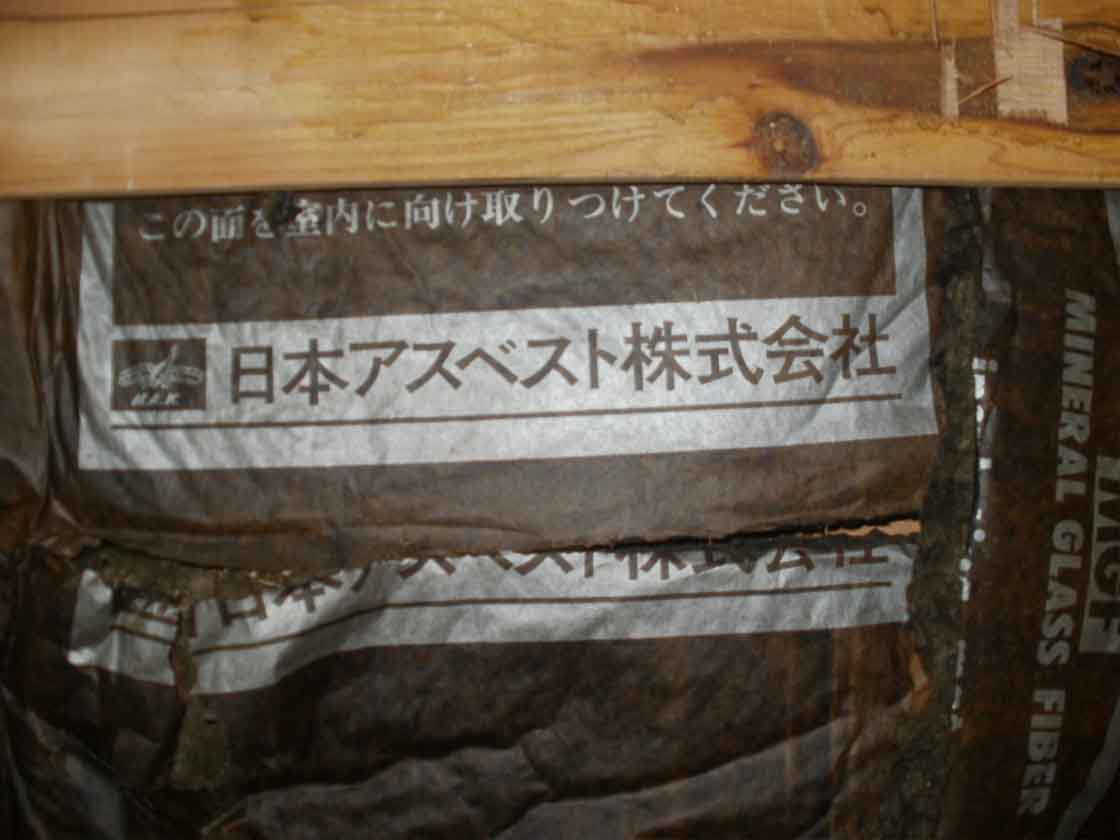 この面を室内に向け取りつけてください。
日本アスベスト株式会社
日本アスベスト株式会社
MINERAL GLASS FIBER